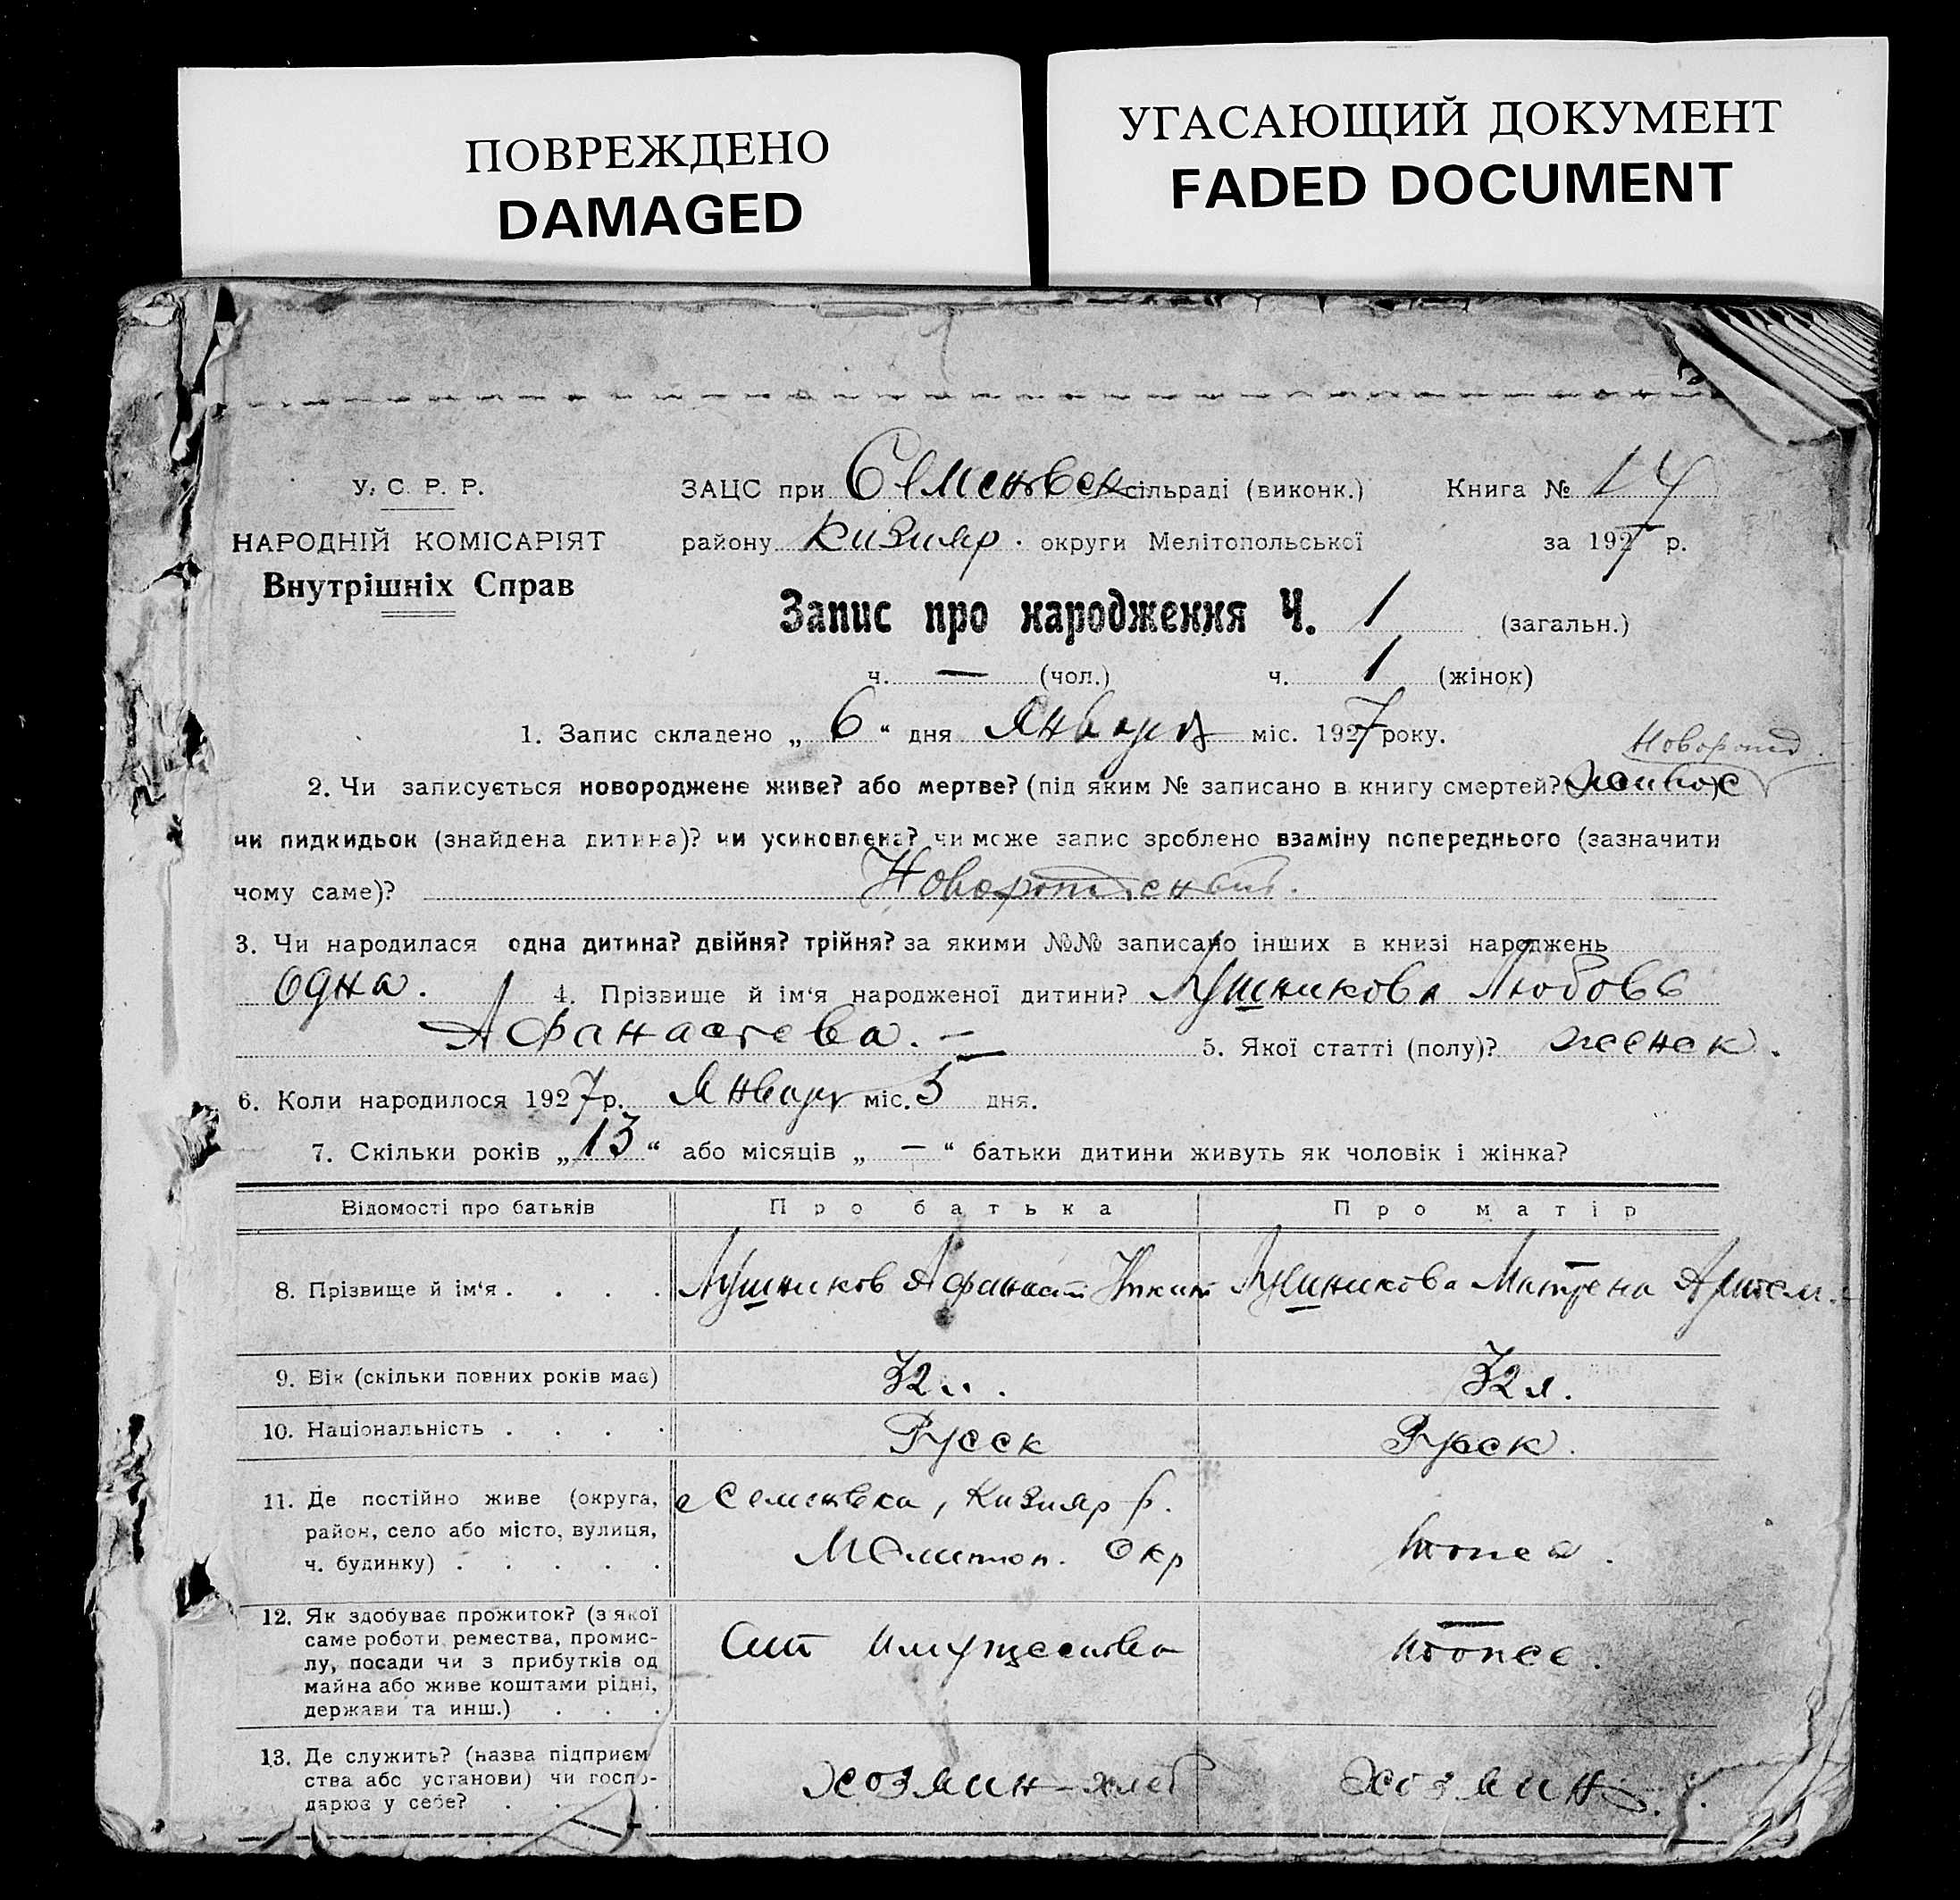 ПОВРЕЖДЕНО
DAMAGED
УГАСАЮЩИЙ ДОКУМЕНТ
FADED DOCUMENT
У. С. Р. Р.
НАРОДНІЙ КОМІСАРІЯТ
Внутрішніх Справ
ЗАЦС при Семеновск сільраді (виконк.) Книга № 14
району Кизияр. округи Мелітопольської за 1927 р.
Запис про народження Ч. 1 (загальн.)
ч. — (чол.) ч. 1 (жінок)
1. Запис складено „ 6 “ дня Января міс. 1927 року.
Деворожд.
2. Чи записується новороджене живе? або мертве? (під яким № записано в книгу смертей?) живое
чи пидкидьок (знайдена дитина)? чи усиновлена? чи може запис зроблено взаміну попереднього (зазначити
чому саме)? Новорожденный.
3. Чи народилася одна дитина? двійня? трійня? за якими №№ записано інших в книзі народжень
одна. 4. Прізвище й ім‘я народженої дитини? Лушникова Любовь
Афанасьева. — 5. Якої статті (полу)? женск.
6. Коли народилося 1927 р. Января міс. 5 дня.
7. Скільки років „ 13 “ або місяців „ — “ батьки дитини живуть як чоловік і жінка?
Відомості про батьків Про батька Про матір
8. Прізвище й ім‘я . . . . Лушников Афанасий Никит Лушникова Матрена Артем.
9. Вік (скільки повних років має) 32 л. 32 л.
10. Національність . . . . Русск Русск.
11. Де постійно живе (округа, район, село або місто, вулиця, ч. будинку) . . . . .
с Семеновка, Кизияр р.
Мелитоп. Окр
12. Як здобуває прожиток? (з якої саме роботи, ремества, промислу, посади чи з прибутків од майна або живе коштами рідні, держави та инш.) . . .
От имущества
13. Де служить? (назва підприємства або установи) чи господарює у себе? . . . .
хозяин – хлеб хозяин